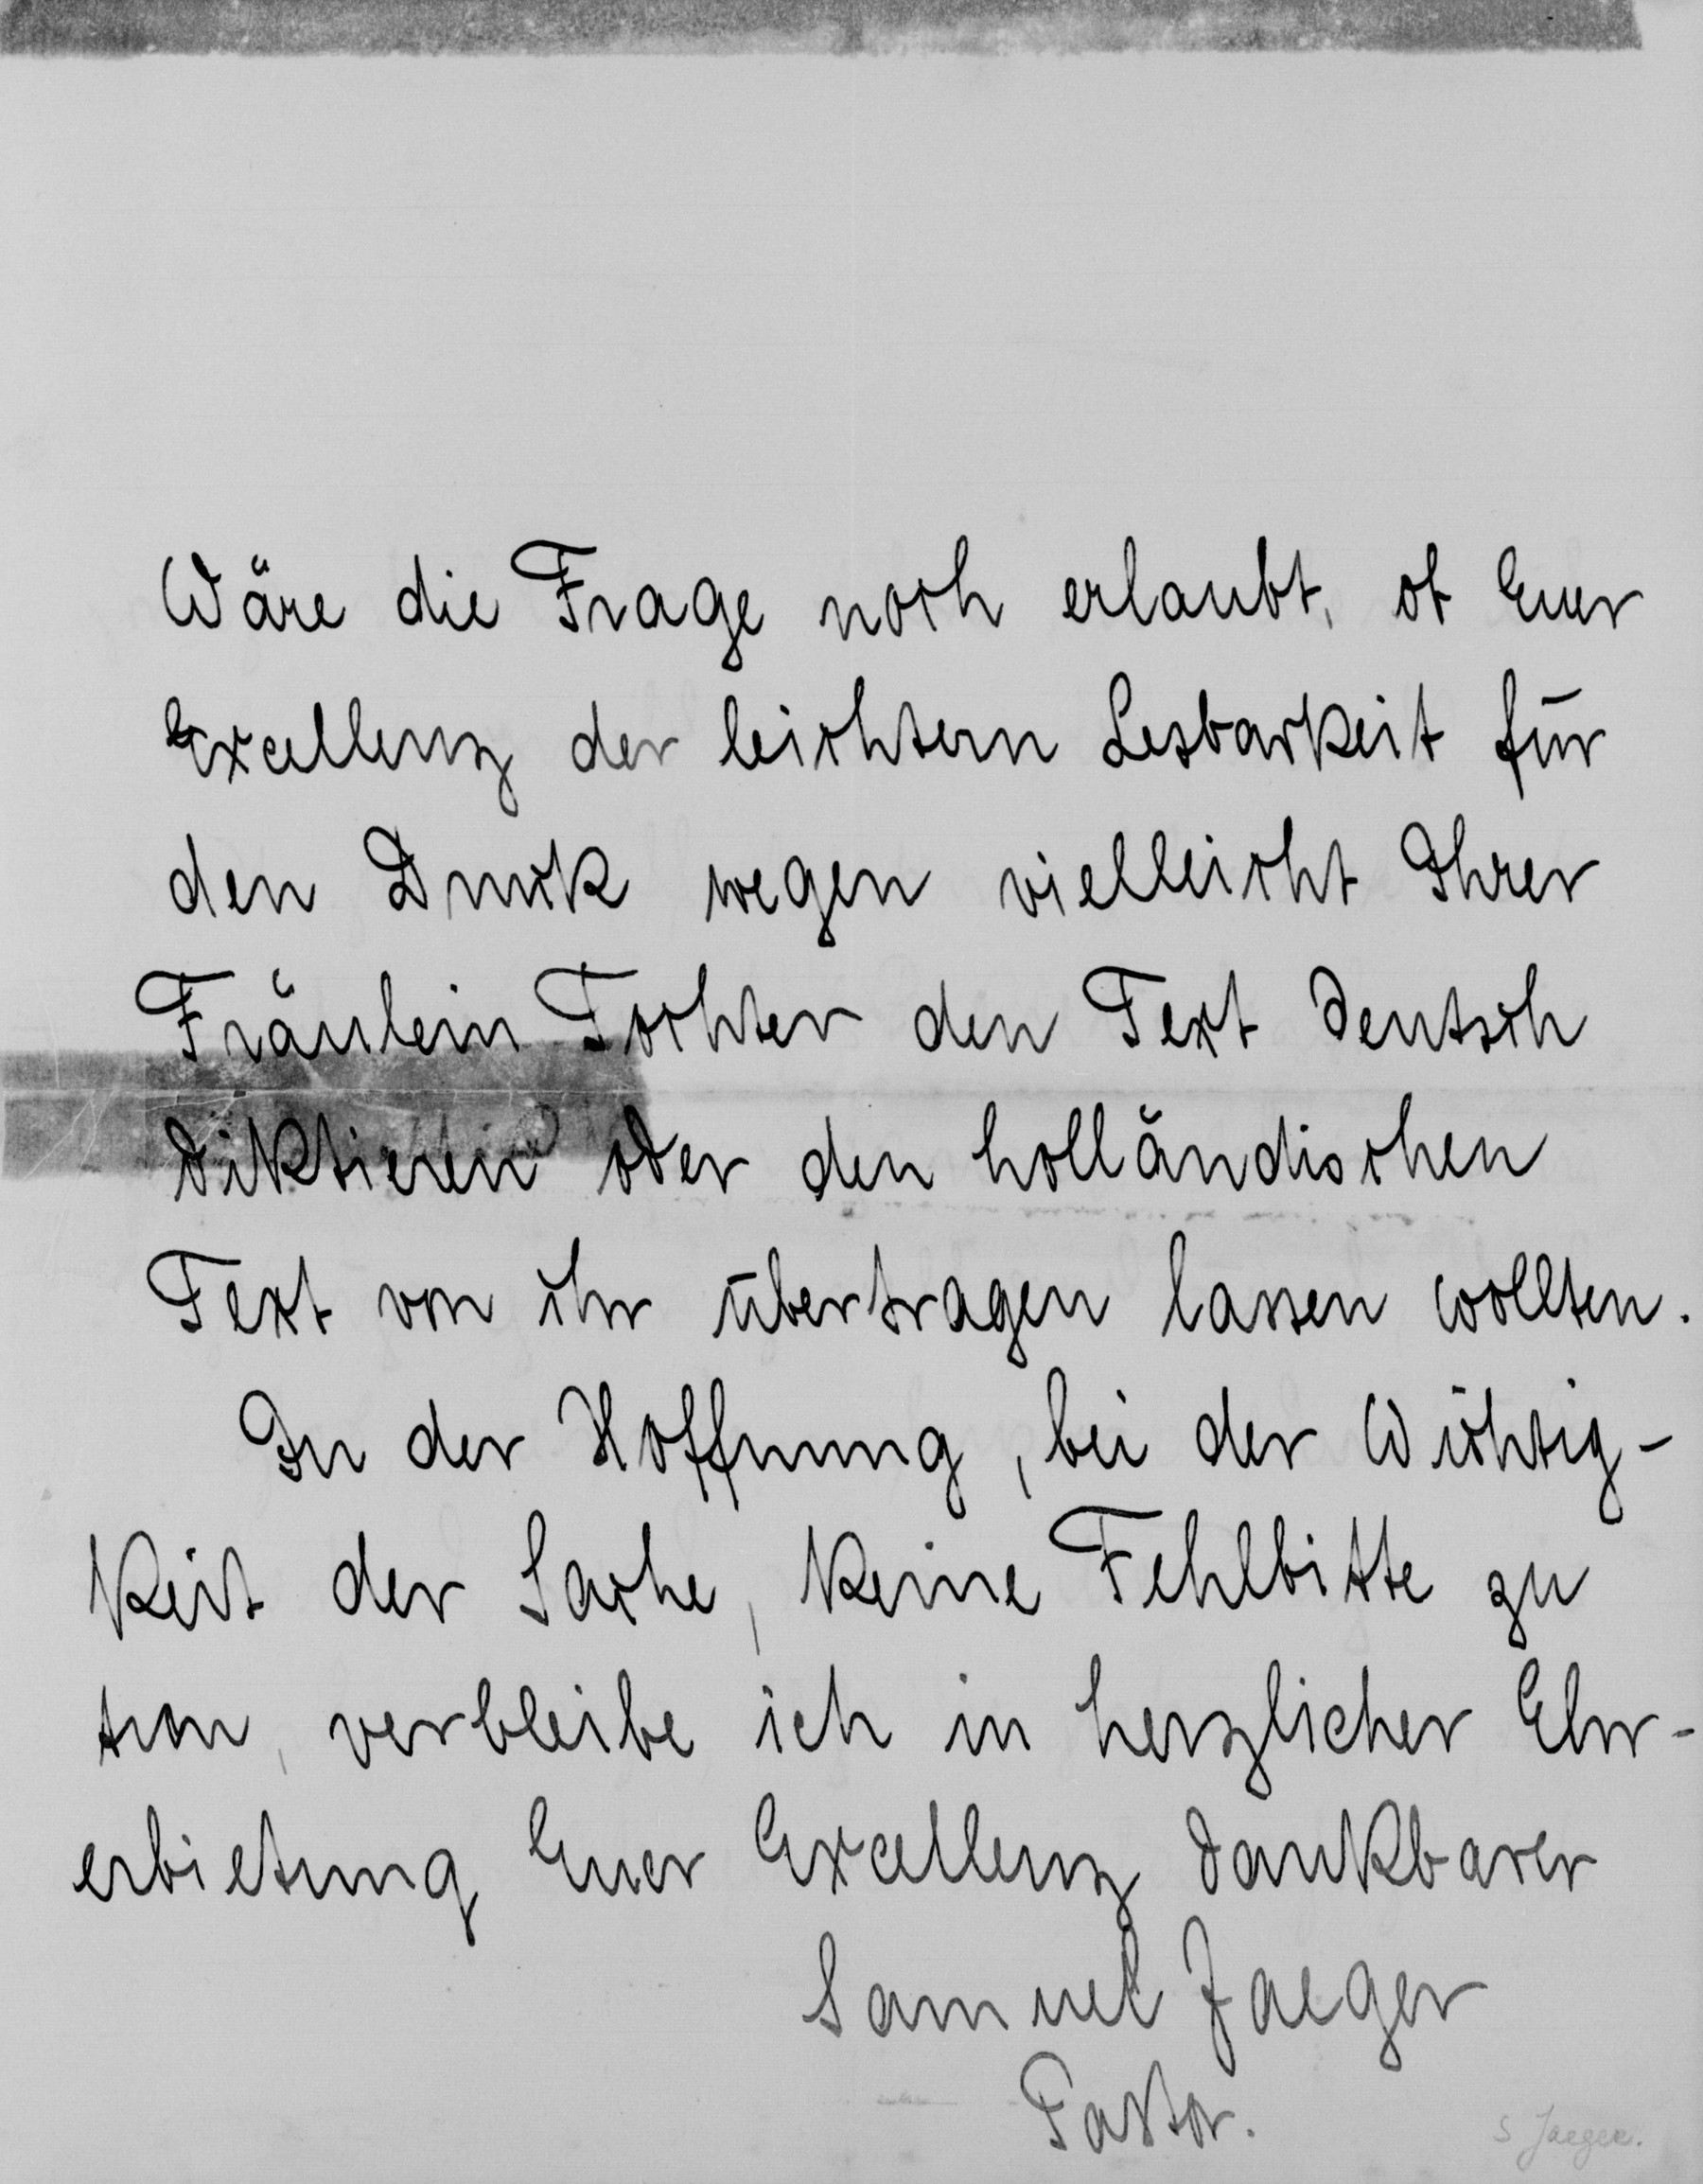 Wäre die Frage noch erlaubt, ob Euer
Excellenz der leichtern Lesbarkeit für
den Druck wegen vielleicht Ihrer
Fräulein Tochter den Text deutsch
diktieren oder den holländischen
Text von ihr übertragen lassen wollten.
In der Hoffnung, bei der Wichtig-
keit der Sache, keine Fehlbitte zu
tun, verbleibe ich in herzlicher Ehr-
erbietung Euer Excellenz dankbarer
Samuel Jaeger
Pastor.
S Jaeger.